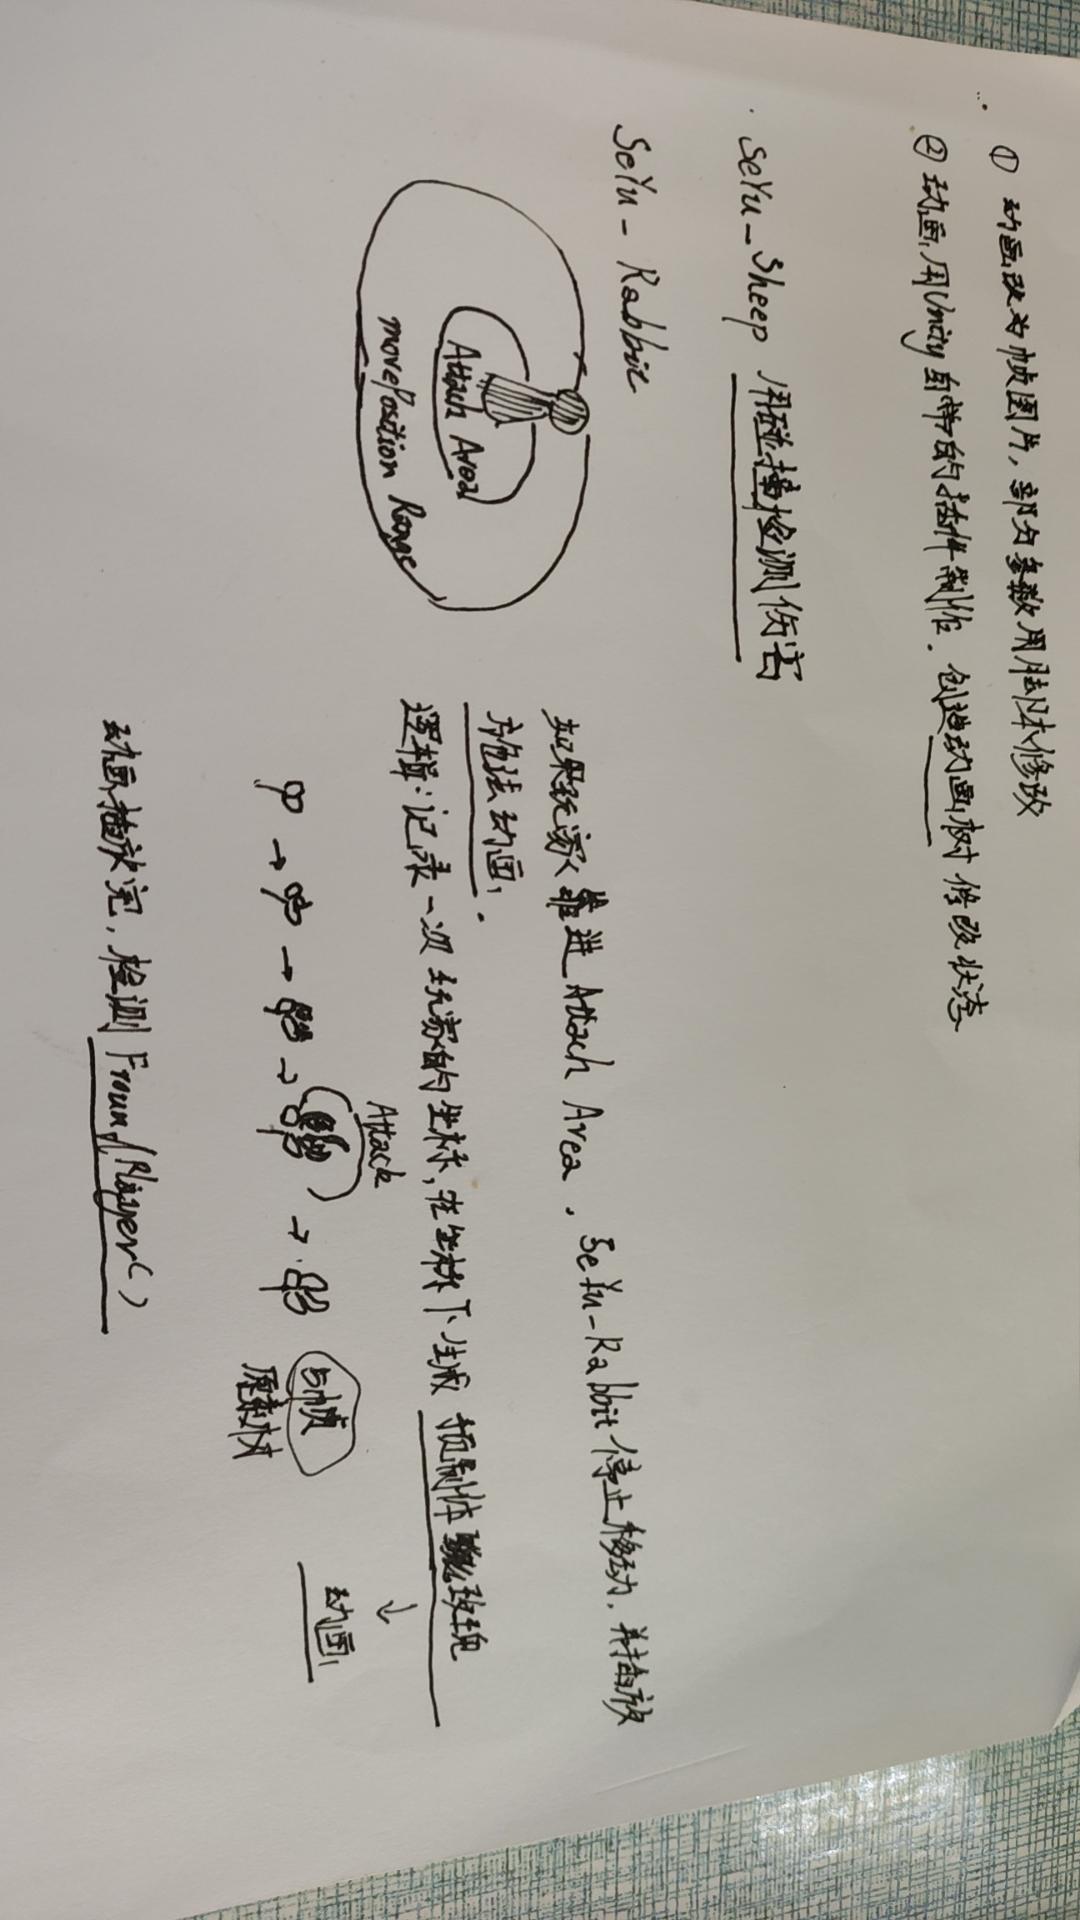 ① 动画改为帧图片，部分参数用脚本修改
② 动画用Unity自带的插件制作．创造动画树 修改状态
SeYu_Sheep 用碰撞检测伤害
SeYu-Rabbit
Attach Area
movePosition Range
如果玩家靠进Attach Area，SeYu-Rabbit停止移动，并播放
施法动画．
逻辑：记录一次玩家的坐标，在坐标下生成 预制体 玫瑰
Attack
↓
→ → → →
5帧
原素材
动画
动画播放完，检测 Player()